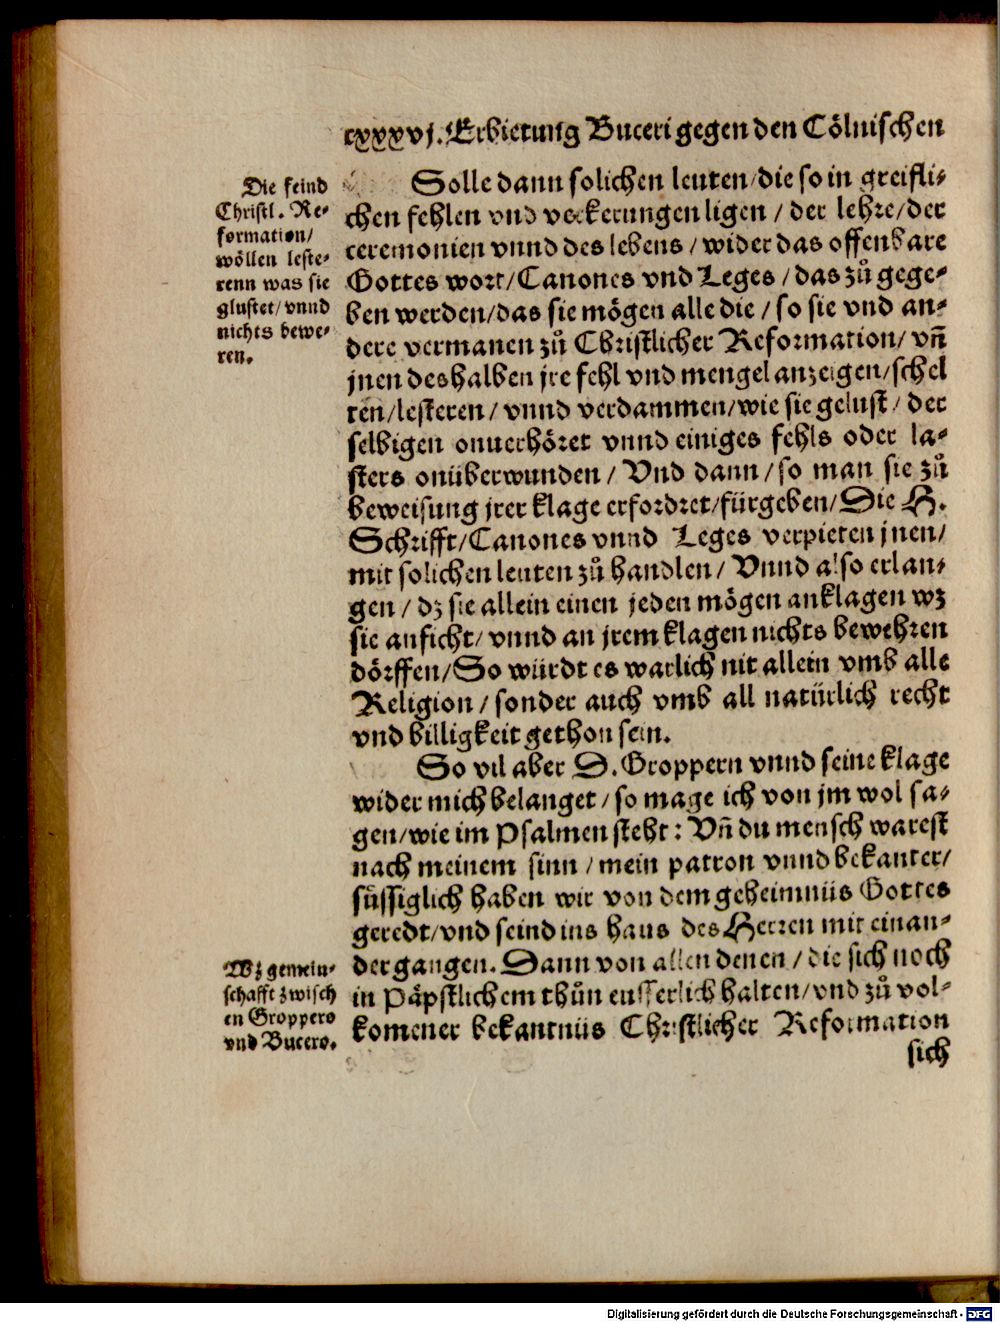 cxxxvj. Erbietung Buceri gegen den Cölnischen
Die feind
Christl. Re-
formation/
wöllen leste-
renn was sie
glustet/vnnd
nichts bewe-
ren.
Solle dann solichen leuten/die so in greifli-
chen fehlen vnd verkerungen ligen / der lehre/der
ceremonien vnnd des lebens / wider das offenbare
Gottes wort/Canones vnd Leges / das zů gege-
ben werden/das sie mögen alle die / so sie vnd an-
dere vermanen zů Christlicher Reformation/ vñ
jnen deshalben jre fehl vnd mengel anzeigen/schel
ten/lesteren / vnnd verdammen/wie sie gelust / der
selbigen onuerhöret vnnd einiges fehls oder la-
sters onüberwunden / Vnd dann / so man sie zů
beweisung jrer klage erfordret/fürgeben/Die H.
Schrifft/Canones vnnd Leges verpieten jnen/
mit solichen leuten zů handlen / Vnnd also erlan-
gen / dz sie allein einen jeden mögen anklagen wz
sie anficht/ vnnd an jrem klagen nichts bewehren
dörffen/So würdt es warlich nit allein vmb alle
Religion / sonder auch vmb all natürlich recht
vnd billigkeit gethon sein.
So vil aber D. Groppern vnnd seine klage
wider mich belanget / so mage ich von jm wol sa-
gen/wie im Psalmen steht : Vñ du mensch warest
nach meinem sinn / mein patron vnnd bekanter/
süssiglich haben wir von dem geheimnüs Gottes
geredt/vnd seind ins haus des Herren mit einan-
der gangen. Dann von allen denen / die sich noch
in Päpstlichem thůn eusserlich halten/vnd zů vol-
komener bekantnüs Christlicher Reformation
Wz gemein-
schafft zwisch
en Groppero
vnd Bucero.
sich
Digitalisierung gefördert durch die Deutsche Forschungsgemeinschaft - DFG